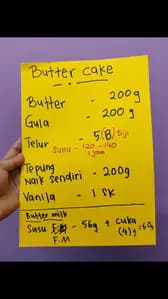 Butter cake
Butter - 200g
Gula - 200g
Telur - 5 (8) Biji
Susu - 120 - 140
1 jam
Tepung
Naik Sendiri - 200g
Vanila - 1 SK
Butter milk
Susu - 56g + Cuka
F.M (4)g = 60g